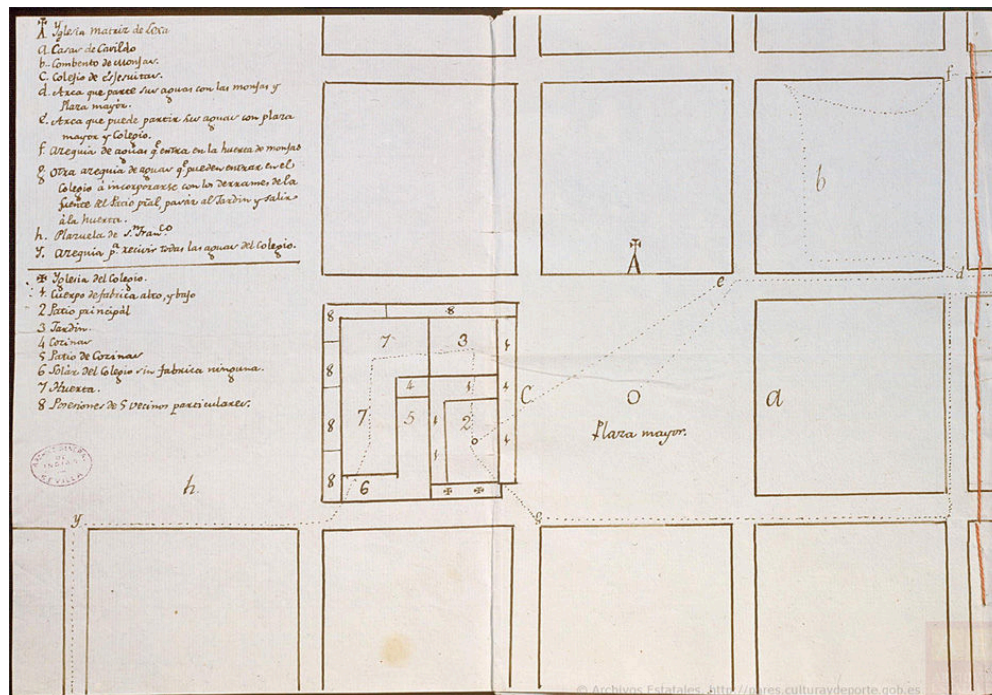 A Yglesia matriz de Loxa
a. Casas de Cavildo
b. Combento de monjas.
C. Colejio de exjesuitas.
d. Arca que parte sus aguas con las monjas y
Plaza mayor.
e. Arca que puede partir sus aguas con plaza
mayor y Colegio.
f. azequia de aguas qe. entra en la huerta de monjas
g. otra azequia de aguas qe. pueden entrar en el
Colegio à incorporarse con los derrames de la
fuente del Patio pral, pasar al Jardin y salir
à la huerta.
h. Plazuela de Sn. Franco.
Y. azequia pa. recivir todas las aguas del Colegio.
✠ Yglesia del Colegio.
1. Cuerpo de fabrica alto, y bajo
2 Patio principal
3 Jardin.
4 Cocinas
5 Patio de Cocinas
6 Solar del Colegio sin fabrica ninguna.
7 Huerta.
8 Posesiones de 5 vecinos particulares.
f
b
A
e
d
8
8
7
3
1
8
4
1
1
C
O
a
7
5
1
2
Plaza mayor.
8
1
1
8
6
✠ ✠
h.
y
g
ARCHIVO GENERAL
DE
INDIAS
SEVILLA
© Archivos Estatales, http://pares.culturaydeporte.gob.es